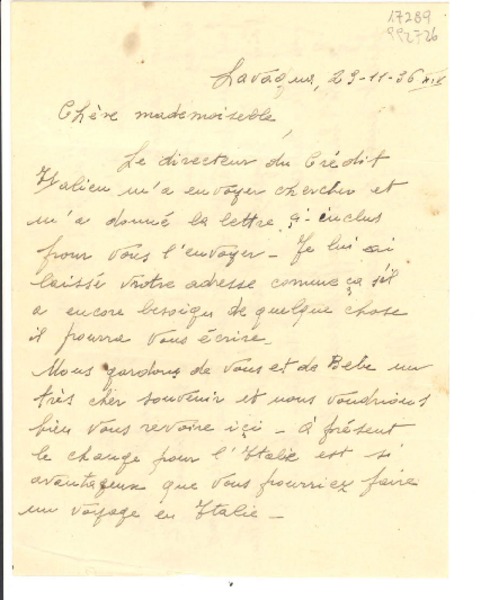 17289
992726
Lavagna, 23-11-36 XIV
Chère mademoiselle,
Le directeur du Crédit
Italien m'a envoyer chercher et
m'a donné la lettre çi-inclus
pour vous l'envoyer - Je lui ai
laissé votre adresse comme ça s'il
a encore besoign de quelque chose
il pourra vous écrire -
Nous gardons de vous et de Bebe un
très cher souvenir et nous voudrions
bien vous revoire içi - à présent
le change pour l'Italie est si
avantageux que vous pourriez faire
un voyage en Italie -